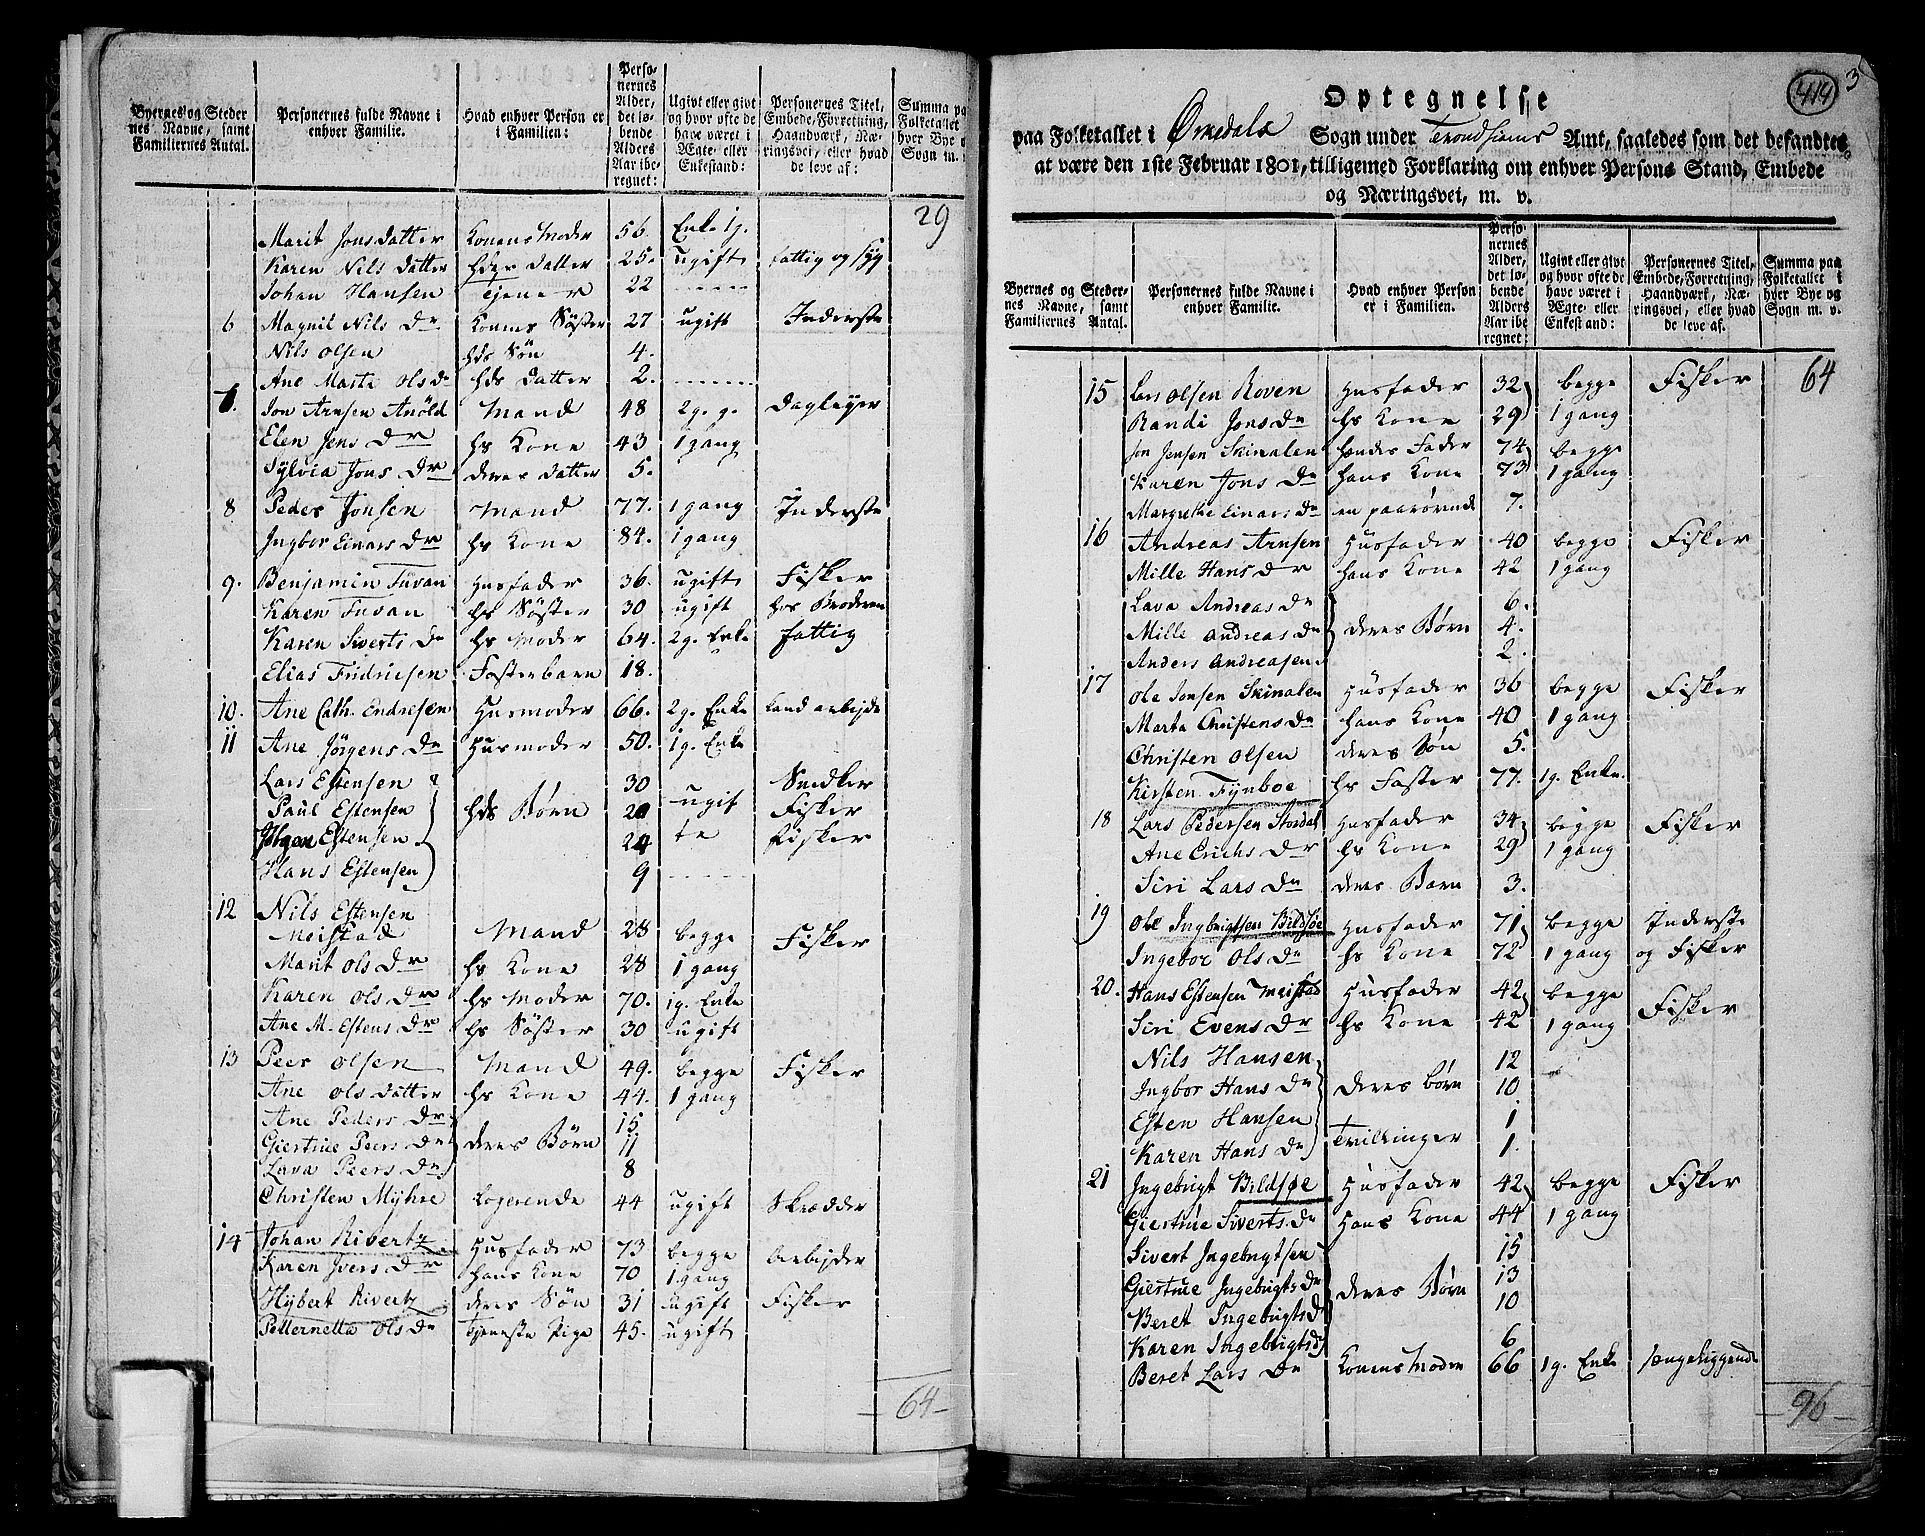 Byernes og Steder
nes Navne, samt
Familiernes Antal.
Personernes fulde Navne i
enhver Familie.
Hvad enhver Person er
i Familien:
Perso-
nernes
Alder,
det lø-
bende
Alders
Aar ibe
regnet:
Ugivt eller givt
og hvor ofte de
have været i
Ægte- eller
Enkestand:
Personernes Titel,
Embede, Forretning,
Haandværk, Næ-
ringsvei, eller hvad
de leve af:
Summa paa
Folketallet
hver Bye
Sogn m.
29
Marit Jonsdatter Konens Moder 56. Enke 1g.
Karen Nils datter hdes datter 25. ugift fattig og syg
Johan Hansen Tjener 22 -----
6 Magnil Nils Dr Konens Søster 27 ugift Inderste
Nils Olsen hds Søn 4.
Ane Marta Ols dr hds datter 2. ------
7. Jon Arnsen Mand 48 2g. g. dagleyer
Elen Jens Dr hs Kone 43 1 gang
Sylvia Jons Dr deres datter 5.
8 Peder Jonsen Mand 77. 1 gang Inderste
Ingbor Einars Dr hs Kone 84. 1 gang
9. Benjamin Tuvan Husfader 36. ugift Fisker
Karen Tuvan hs Søster 30 ugift hos Broderen
Karen Siverts Dr hs Moder 64. 2g. Enke fattig
Elias Fridricsen Fosterbarn 18.
10. Ane Cath. Endresen Husmoder 66. 2g. Enke Land arbejde
11 Ane Jørgens Dr Husmoder 50. 1g. Enke
Lars Estensen 30 Snedker
Paul Estensen hds Børn ugif Fisker
Estensen 24 te fisker
Hans Estensen 9 -----
12 Nils Estensen
Meistad Mand 28 begge Fisker
Marit Ols Dr hs Kone 28 1 gang
Karen Ols Dr hs Moder 70. 1g. Enke
Ane M. Estens Dr hs Søster 30 ugift
13 Peer Olsen Mand 49. begge Fisker
Ane Ols datter hs Kone 44. 1 gang
Ane Peders Dr 15
Giertrue Peers Dr deres Børn 11
Lava Peers Dr 8
Christen Myhre Logerende 44 ugift Skrædder
14 Johan Rivertz Husfader 73 begge Arbejder
Karen Ivers Dr hans Kone 70 1 gang
Hybert Rivertz deres Søn 31 ugift Fisker
Petternetta Ols Dr Tjeneste Pige 45. ugift
- 64 -
414
3
Optegnelse
paa Folketallet i Ørkedals Sogn under Trondhiems Amt, saaledes som det befandtes
at være den 1ste Februar 1801, tilligemed Forklaring om enhver Persons Stand, Embede
og Næringsvei, m. v.
Byernes og Steder-
nes Navne, samt
Familiernes Antal.
Personernes fulde Navne i
enhver Familie.
Hvad enhver Person
er i Familien.
Perso-
nernes
Alder,
det lø-
bende
Alders
Aar ibe
regnet:
Ugivt eller givt
og hvor ofte de
have været i
Ægte- eller
Enkestand:
Personernes Titel,
Embede, Forretning,
Haandværk, Næ-
ringsvei, eller hvad
de leve af.
Summa paa
Folketallet i
hver Bye og
Sogn m. v.
64
15 Lars Olsen Roven Husfader 32 begge Fisker
Randi Jons Dr hs Kone 29 1 gang
Jon Jensen Skinalen hendes Fader 74 begge
Karen Jons Dr hans Kone 73 1 gang
Margrethe Einars Dr en paarørende 7.
16 Andreas Arnsen Husfader 40 begge Fisker
Mille Hans Dr hans Kone 42 1 gang
Lava Andreas Dr 6.
Mille Andreas Dr deres Børn 4.
Anders Andreasen 2.
17 Ole Jonsen Skinalen Husfader 36 begge Fisker
Marta Christens Dr hans Kone 40 1 gang
Christen Olsen deres Søn 5.
Kirsten Fynboe hs Faster 77. 1g. Enke.
18 Lars Pedersen Stordal Husfader 34 begge Fisker
Ane Erichs Dr hs Kone 29 1 gang
Siri Lars Dr deres Barn 3.
19 Ole Ingbrigtsen Bildsøe Husfader 71 begge Inderste
Ingebor Ols Dr hs Kone 72 1 gang og Fisker
20. Hans Estensen Meistad Husfader 42 begge Fisker
Siri Evens Dr hs Kone 42 1 gang
Nils Hansen 12
Ingbor Hans Dr deres Børn 10
Esten Hansen 1
Karen Hans Dr Tvillinger 1.
21 Ingebrigt Bildsøe Husfader 42 begge Fisker
Giertrue Siverts Dr Hans Kone 44 1 gang
Sivert Ingebrigtsen 15
Giertrue Ingebrigts Dr deres Børn 13
Beret Ingebrigts D 10
Karen Ingebrigts Dr 6
Beret Lars Dr Konens Moder 66 1g. Enke sengeliggende
- 96 -